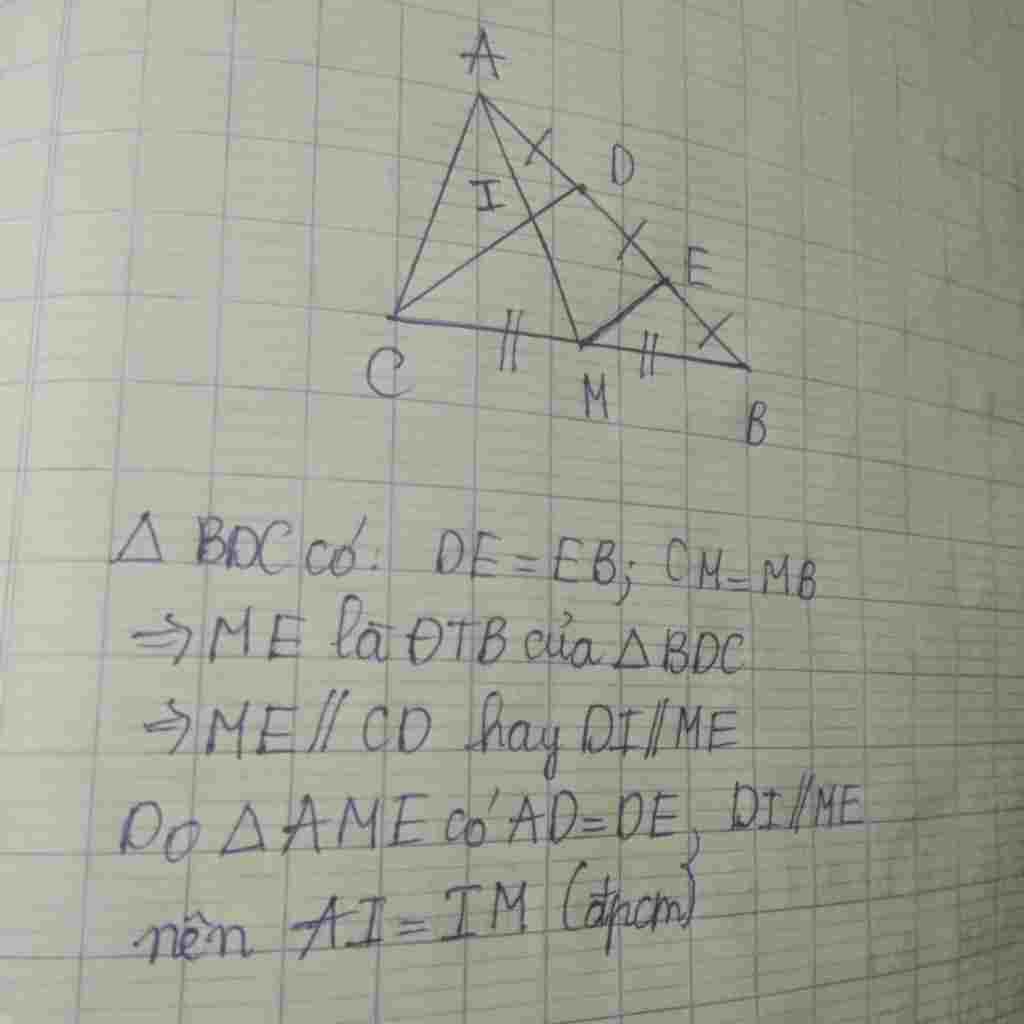 A
D
I
E
C
M
B
△ BDC có: DE = EB; CM = MB
⇒ ME là ĐTB của △ BDC
⇒ ME // CD hay DI // ME
Do △ AME có AD = DE, DI // ME
nên AI = IM (đpcm}